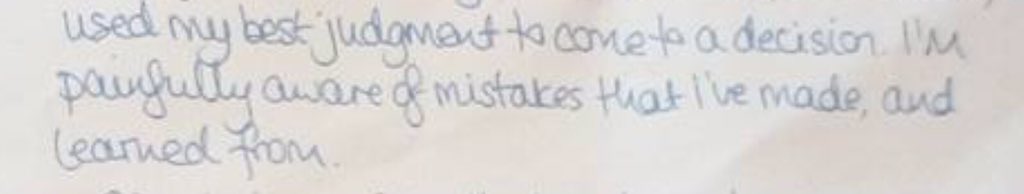 used my best judgment to come to a decision. I'm
painfully aware of mistakes that I've made, and
learned from.